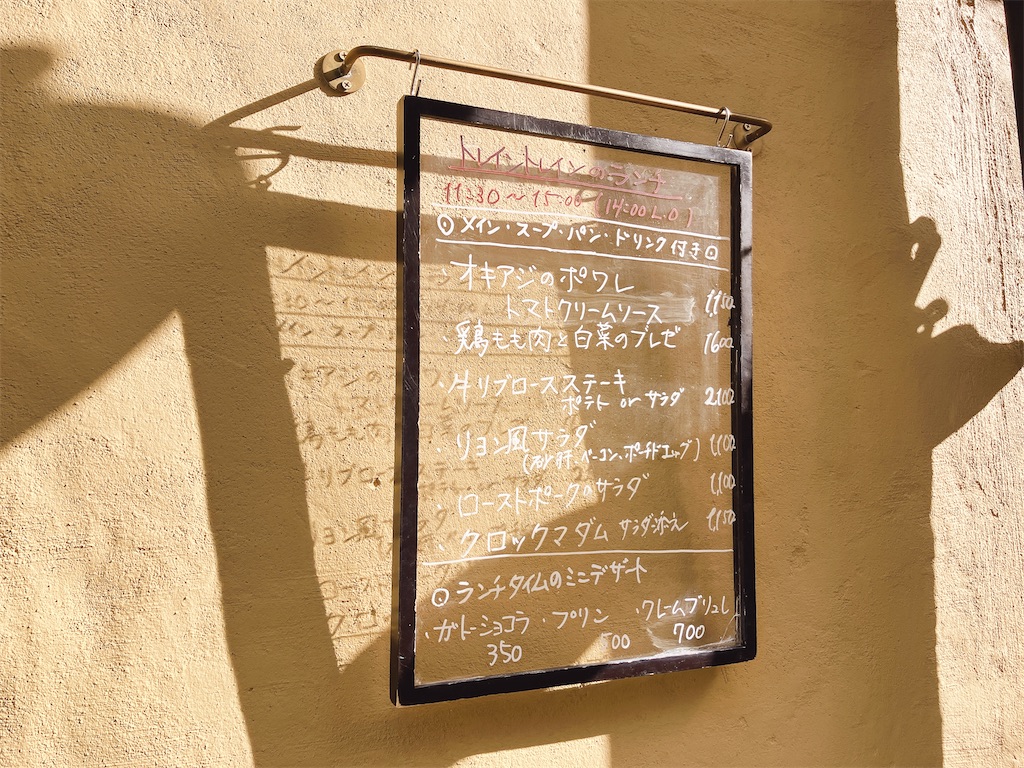 トレイントレインのランチ
11:30〜15:00 (14:00 L.O)
◎メイン・スープ・パン・ドリンク付き◎
・オキアジのポワレ
トマトクリームソース 1,150
・鶏もも肉と白菜のブレゼ 1600
・牛リブロースステーキ
ポテト or サラダ 2,100
・リヨン風サラダ
ベーコン、ポーチドエッグ) 1,100
・ローストポークのサラダ 1,100
・クロックマダム サラダ添え 1,150
◎ランチタイムのミニデザート
・ガトーショコラ ・プリン ・クレームブリュレ
350 500 700